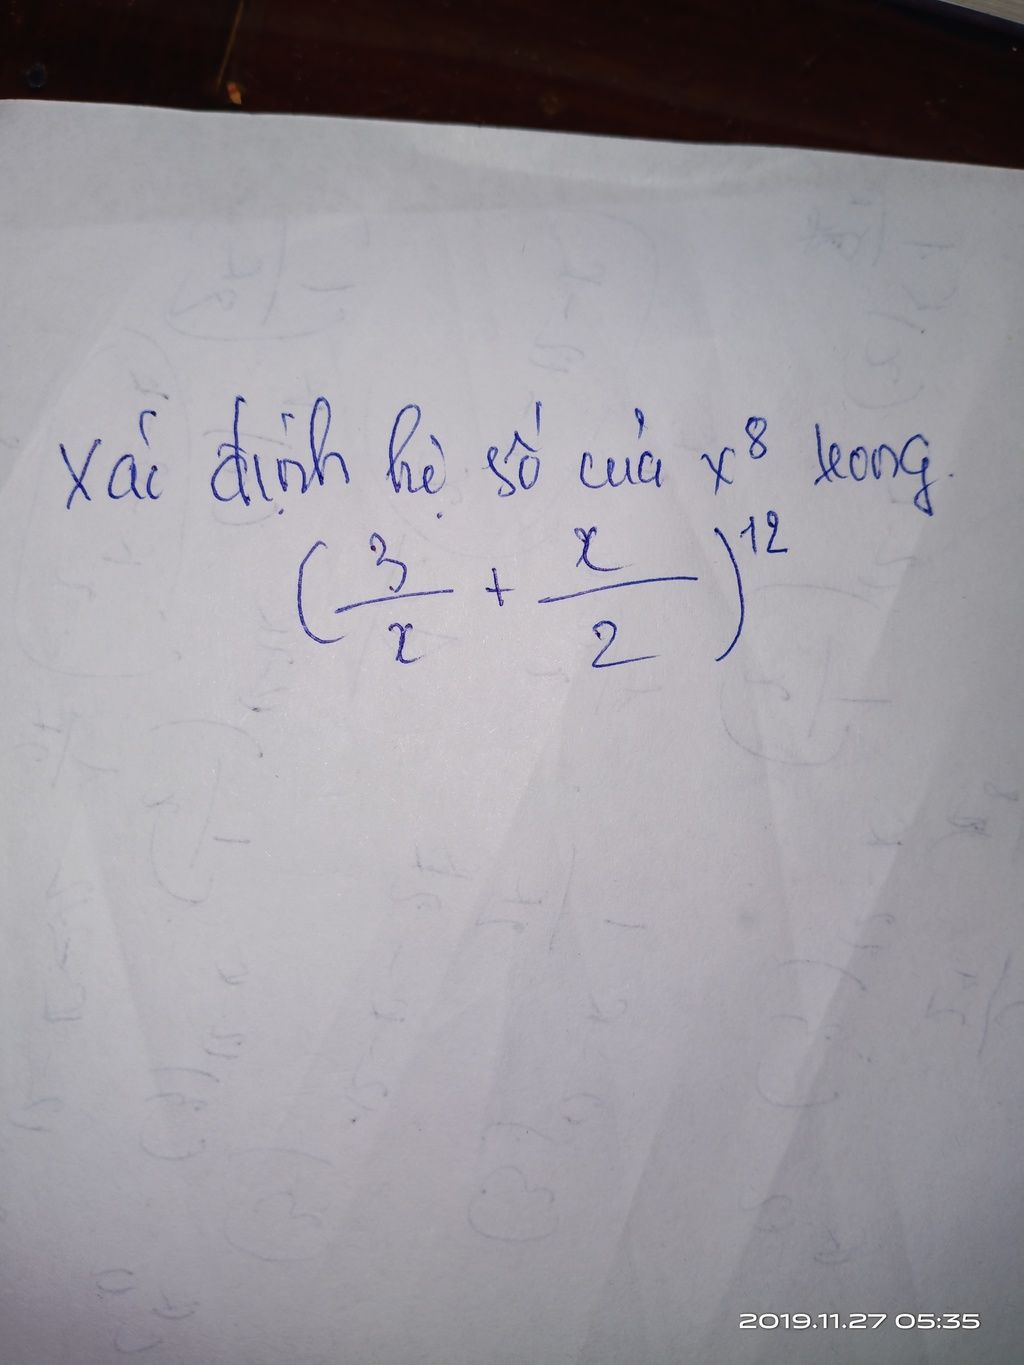 Xác định hệ số của x⁸ trong.
(3/x + x/2)¹²
2019.11.27 05:35